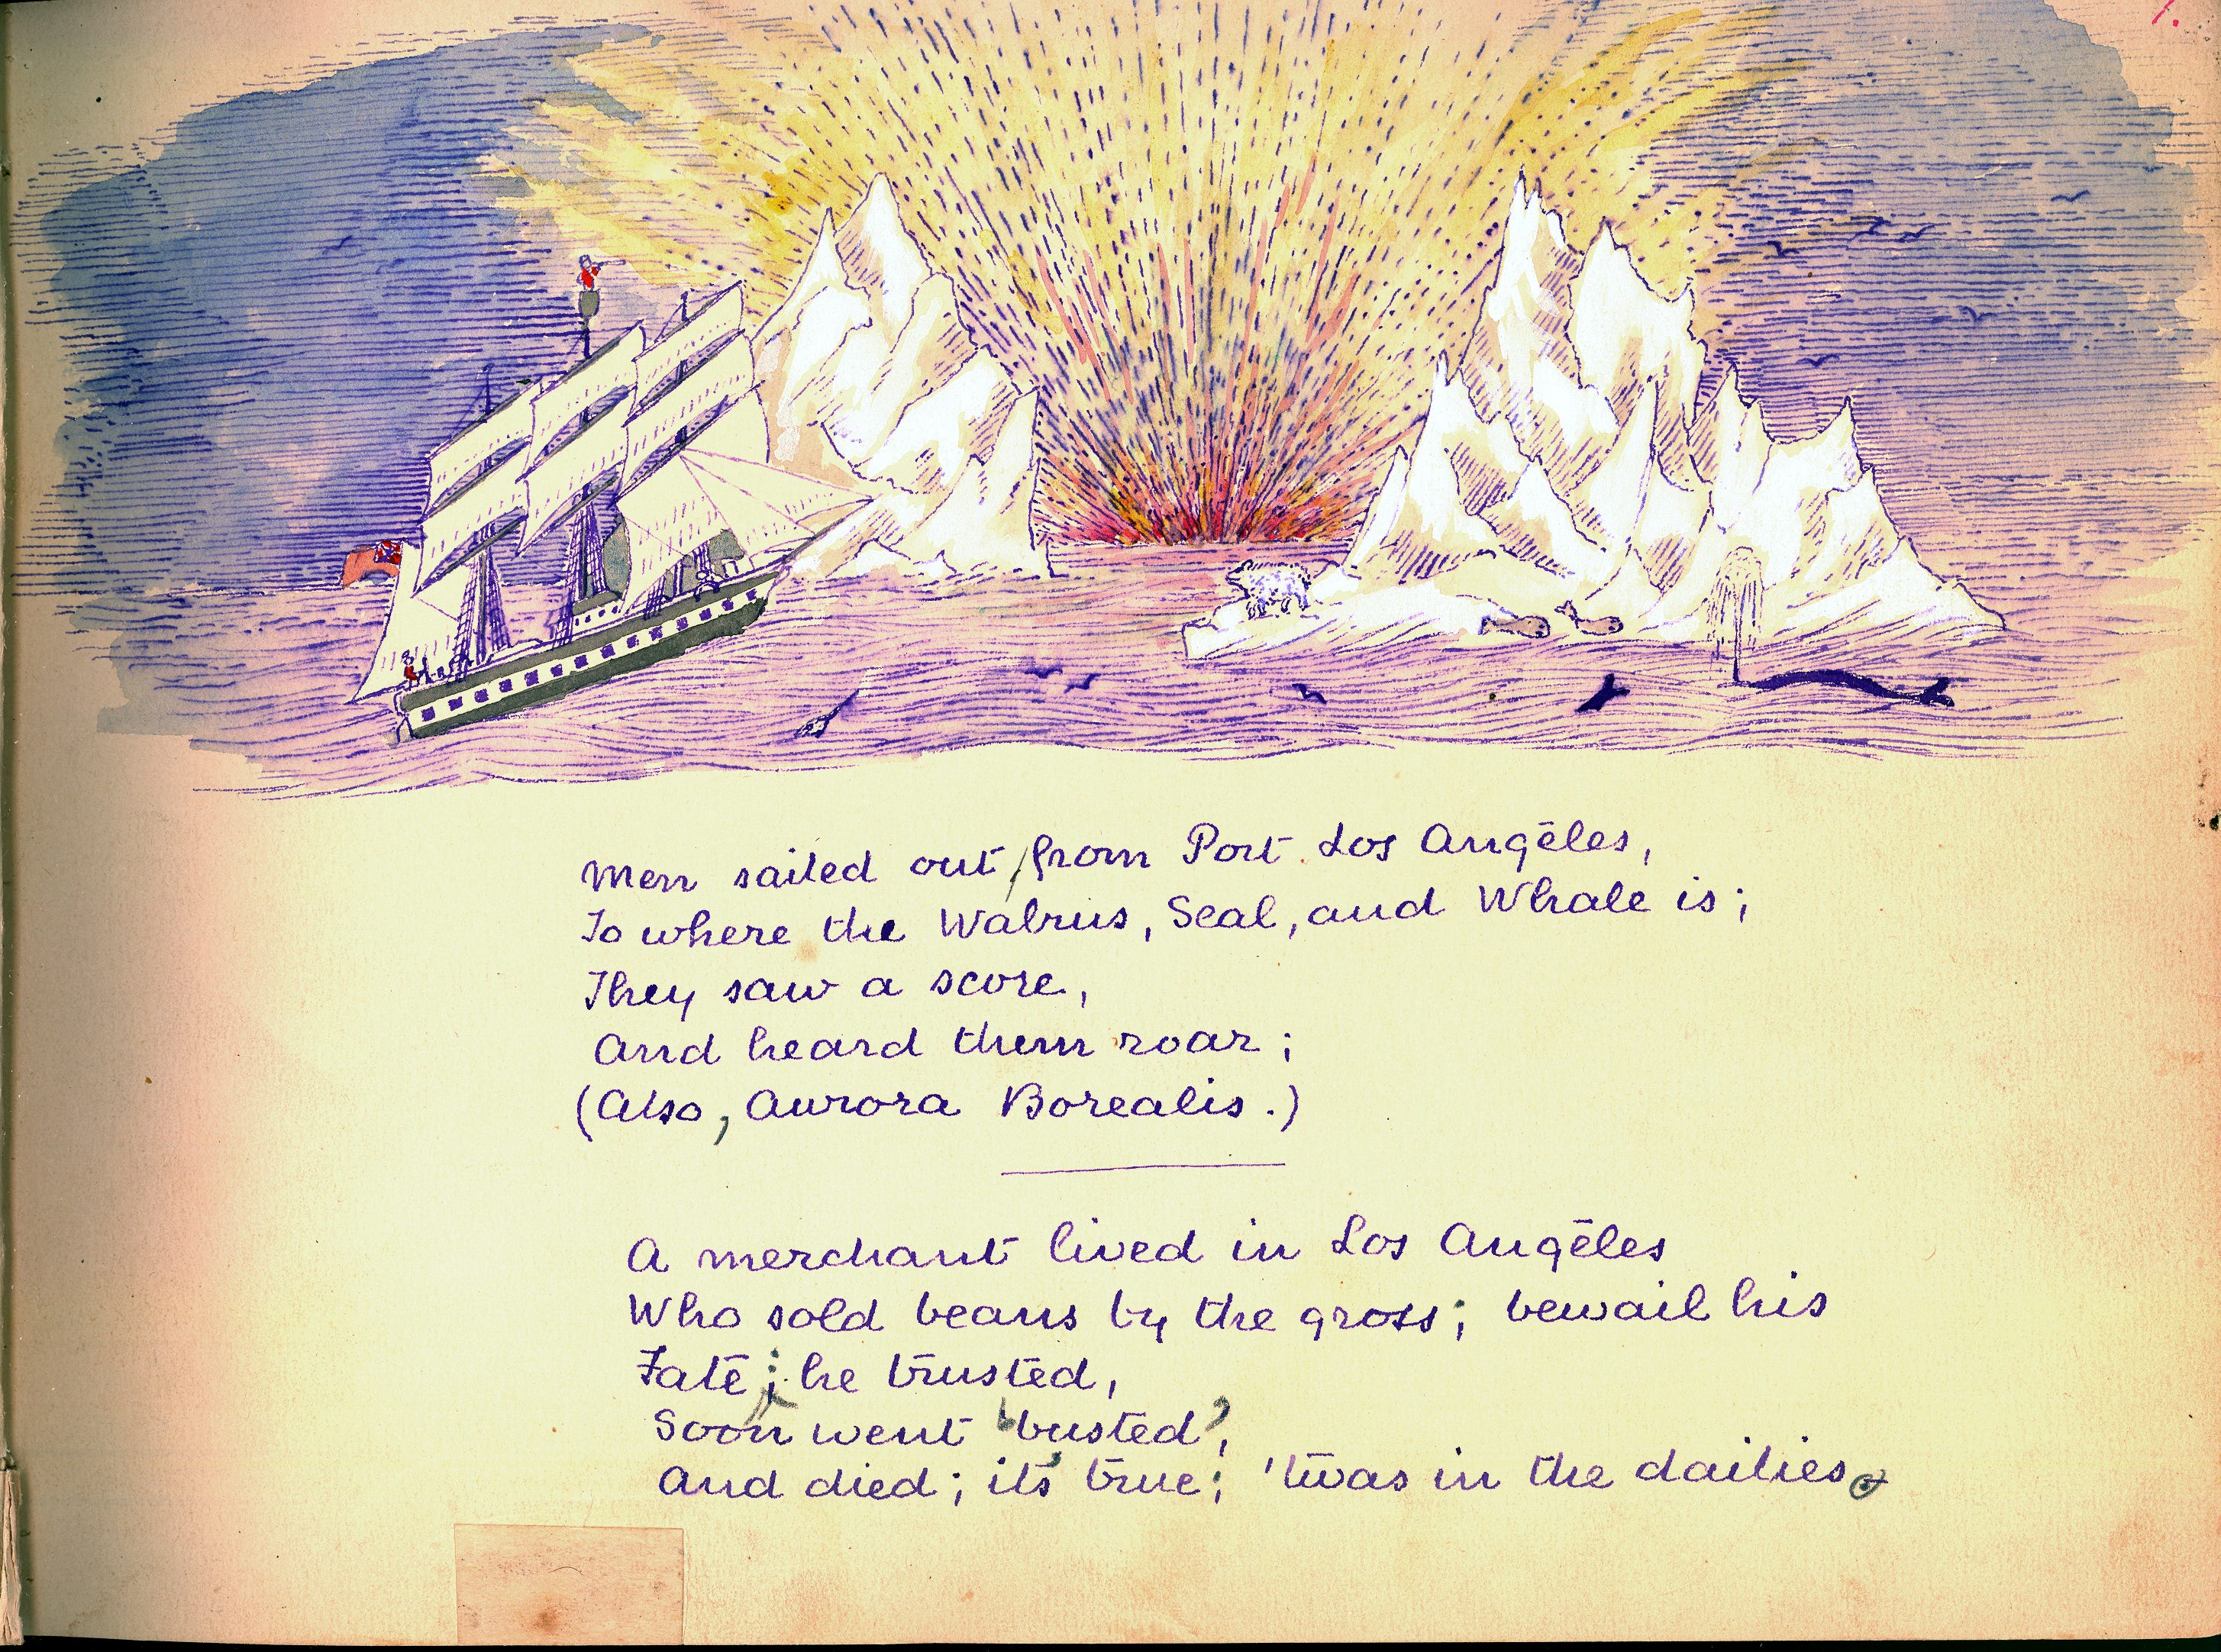 1.
Men sailed out, from Port Los Angēles,
To where the Walrus, Seal, and Whale is;
They saw a score,
And heard them roar;
(Also, Aurora Borealis.)
A merchant lived in Los Angēles
Who sold beans by the gross; bewail his
Fate; he trusted,
Soon went 'busted',
And died; it's true; 'twas in the dailies.